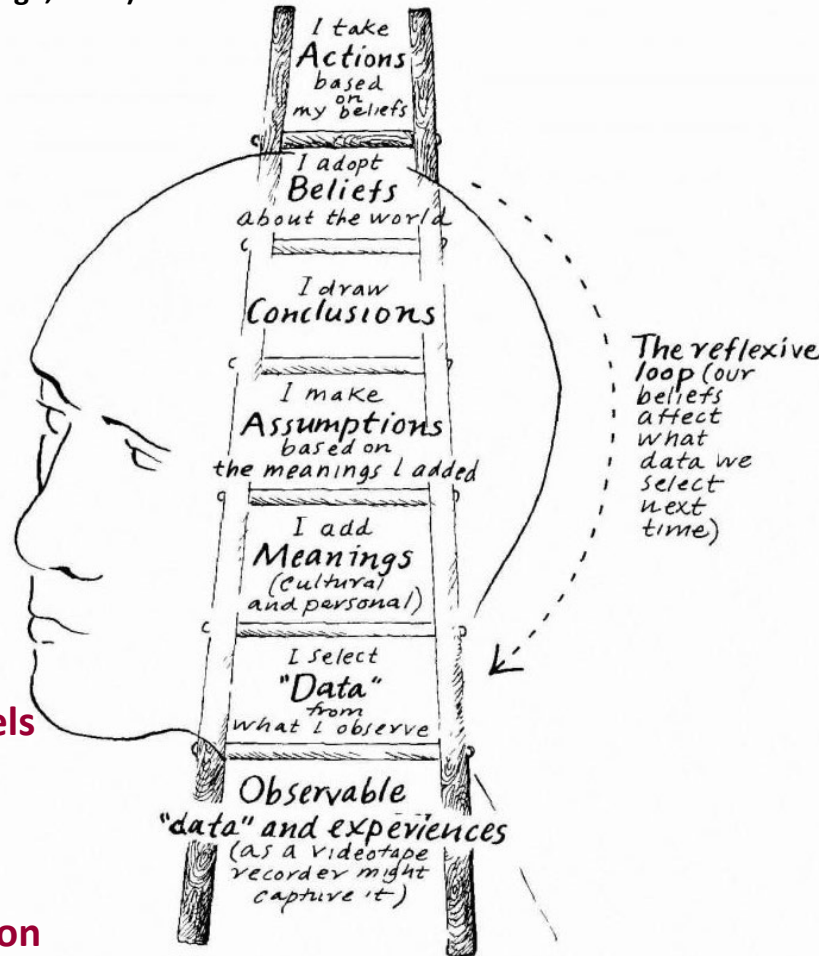 I take
Actions
based
on
my beliefs
I adopt
Beliefs
about the world
I draw
Conclusions
I make
Assumptions
based on
the meanings I added
I add
Meanings
(cultural
and personal)
I select
"Data"
from
what I observe
Observable
"data" and experiences
(as a videotape
recorder might
capture it)
The reflexive
loop (our
beliefs
affect
what
data we
select
next
time)
els
on